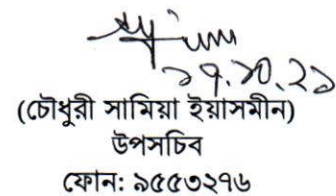 ১৭.১০.২১
(চৌধুরী সামিয়া ইয়াসমীন)
উপসচিব
ফোন: ৯৫৫৩২৭৬